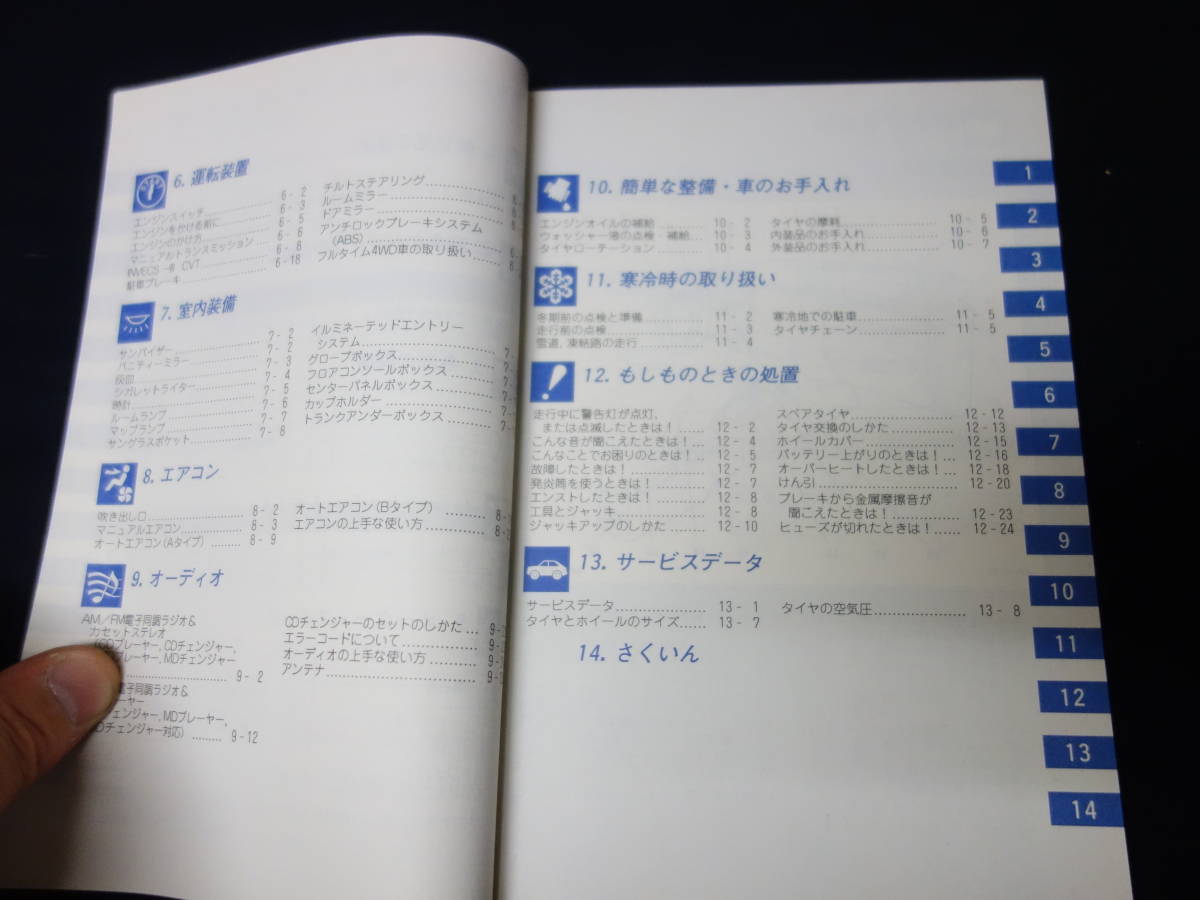 6. 運転装置
エンジンスイッチ 6- 2
エンジンをかける前に 6- 3
エンジンのかけ方 6- 5
マニュアルトランスミッション 6- 6
INVECS-Ⅲ CVT 6- 8
駐車ブレーキ 6-18
チルトステアリング 6-
ルームミラー 6-
ドアミラー 6-
アンチロックブレーキシステム
(ABS) 6-
フルタイム4WD車の取り扱い 6-
7. 室内装備
サンバイザー 7- 2
バニティーミラー 7- 2
灰皿 7- 3
シガレットライター 7- 4
時計 7- 5
ルームランプ 7- 6
マップランプ 7- 7
サングラスポケット 7- 8
イルミネーテッドエントリー
システム 7-
グローブボックス 7-
フロアコンソールボックス 7-
センターパネルボックス 7-
カップホルダー 7-
トランクアンダーボックス 7-
8. エアコン
吹き出し口 8- 2
マニュアルエアコン 8- 3
オートエアコン(Aタイプ) 8- 9
オートエアコン(Bタイプ) 8-
エアコンの上手な使い方 8-
9. オーディオ
AM/FM電子同調ラジオ&
カセットステレオ
(CDプレーヤー, CDチェンジャー,
プレーヤー, MDチェンジャー
9- 2
電子同調ラジオ&
ーヤー
チェンジャー, MDプレーヤー,
Dチェンジャー対応) 9-12
CDチェンジャーのセットのしかた 9-
エラーコードについて 9-
オーディオの上手な使い方 9-
アンテナ 9-
10. 簡単な整備・車のお手入れ
エンジンオイルの補給 10- 2
ウォッシャー液の点検・補給 10- 3
タイヤローテーション 10- 4
タイヤの摩耗 10- 5
内装品のお手入れ 10- 6
外装品のお手入れ 10- 7
11. 寒冷時の取り扱い
冬期前の点検と準備 11- 2
走行前の点検 11- 3
雪道, 凍結路の走行 11- 4
寒冷地での駐車 11- 5
タイヤチェーン 11- 5
12. もしものときの処置
走行中に警告灯が点灯,
または点滅したときは! 12- 2
こんな音が聞こえたときは! 12- 4
こんなことでお困りのときは! 12- 5
故障したときは! 12- 7
発炎筒を使うときは! 12- 7
エンストしたときは! 12- 8
工具とジャッキ 12- 8
ジャッキアップのしかた 12-10
スペアタイヤ 12-12
タイヤ交換のしかた 12-13
ホイールカバー 12-15
バッテリー上がりのときは! 12-16
オーバーヒートしたときは! 12-18
けん引 12-20
ブレーキから金属摩擦音が
聞こえたときは! 12-23
ヒューズが切れたときは! 12-24
13. サービスデータ
サービスデータ 13- 1
タイヤとホイールのサイズ 13- 7
タイヤの空気圧 13- 8
14. さくいん
1
2
3
4
5
6
7
8
9
10
11
12
13
14